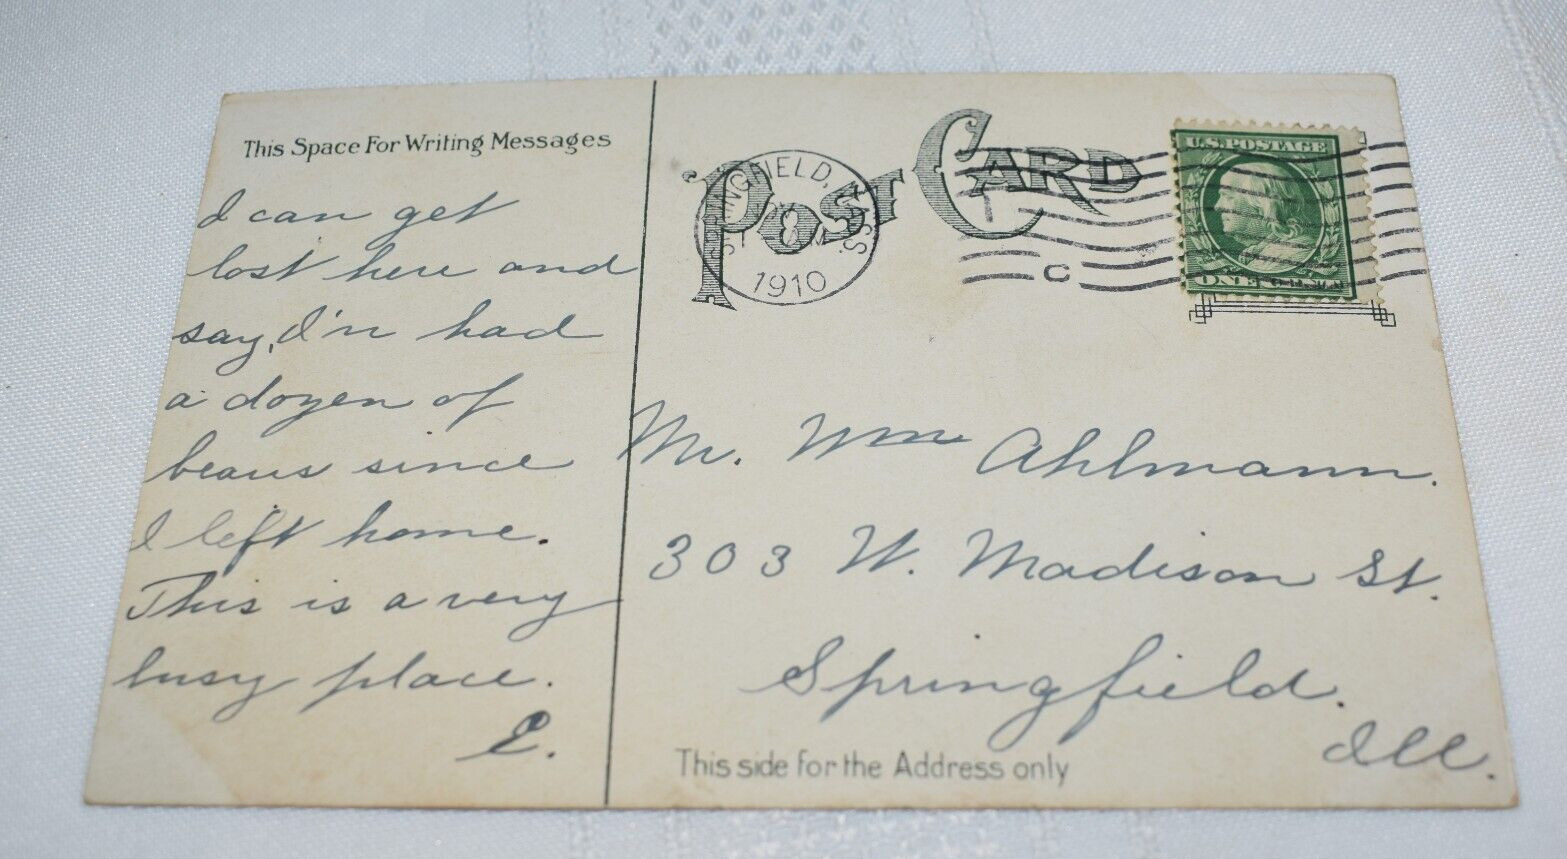 This Space For Writing Messages
I can get
lost here and
say, I'n had
a dozen of
beans since
I left home.
This is a very
busy place.
E.
POST CARD
SPRINGFIELD,
1910
C
U.S. POSTAGE
ONE
Mr. Wm Ahlmann.
303 W. Madison St.
Springfield.
Ill.
This side for the Address only